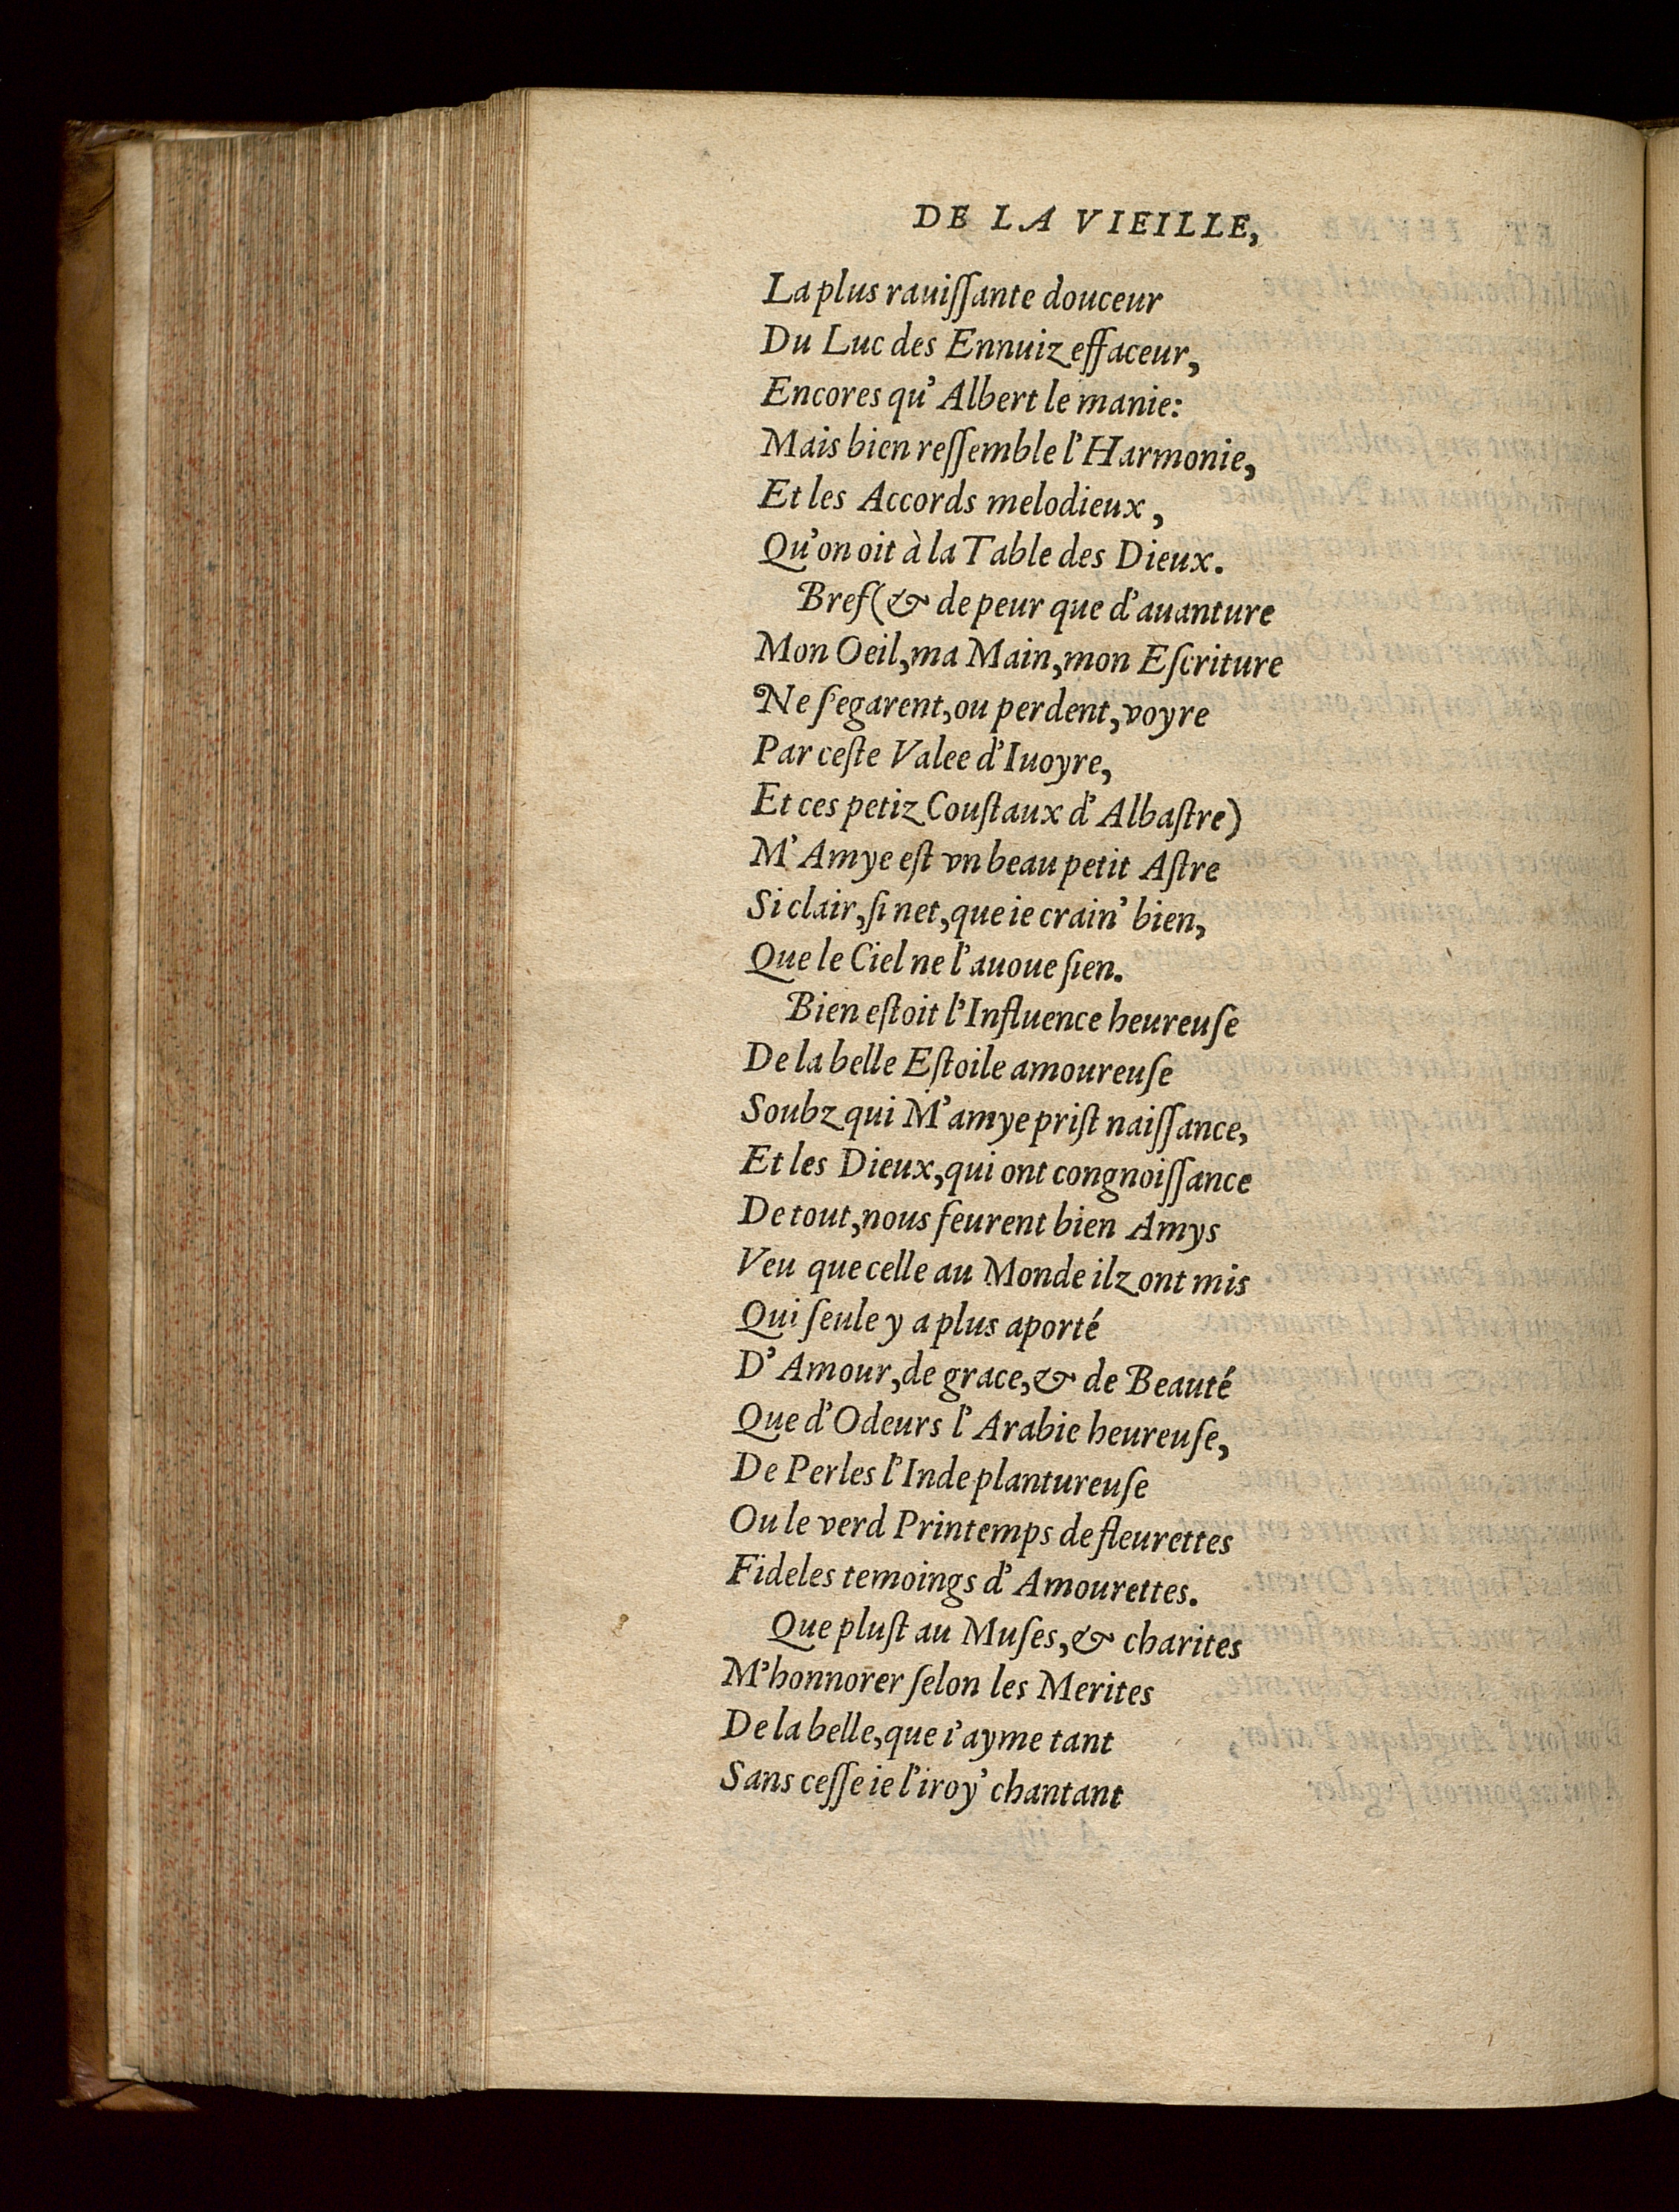 DE LA VIEILLE,
La plus rauiſſante douceur
Du Luc des Ennuiz effaceur,
Encores qu' Albert le manie:
Mais bien reſſemble l'Harmonie,
Et les Accords melodieux,
Qu'on oit à la Table des Dieux.
Bref (& de peur que d'auanture
Mon Oeil, ma Main, mon Eſcriture
Ne ſ'egarent, ou perdent, voyre
Par ceſte Valee d'Iuoyre,
Et ces petiz Couſtaux d'Albaſtre)
M'Amye eſt vn beau petit Aſtre
Si clair, ſi net, que ie crain' bien,
Que le Ciel ne l'auoue ſien.
Bien eſtoit l'Influence heureuſe
De la belle Eſtoile amoureuſe
Soubz qui M'amye priſt naiſſance,
Et les Dieux, qui ont congnoiſſance
De tout, nous feurent bien Amys
Veu que celle au Monde ilz ont mis
Qui ſeule y a plus aporté
D'Amour, de grace, & de Beauté
Que d'Odeurs l'Arabie heureuſe,
De Perles l'Inde plantureuſe
Ou le verd Printemps de fleurettes
Fideles temoings d'Amourettes.
Que pluſt au Muſes, & charites
M'honnorer ſelon les Merites
De la belle, que i'ayme tant
Sans ceſſe ie l'iroy' chantant